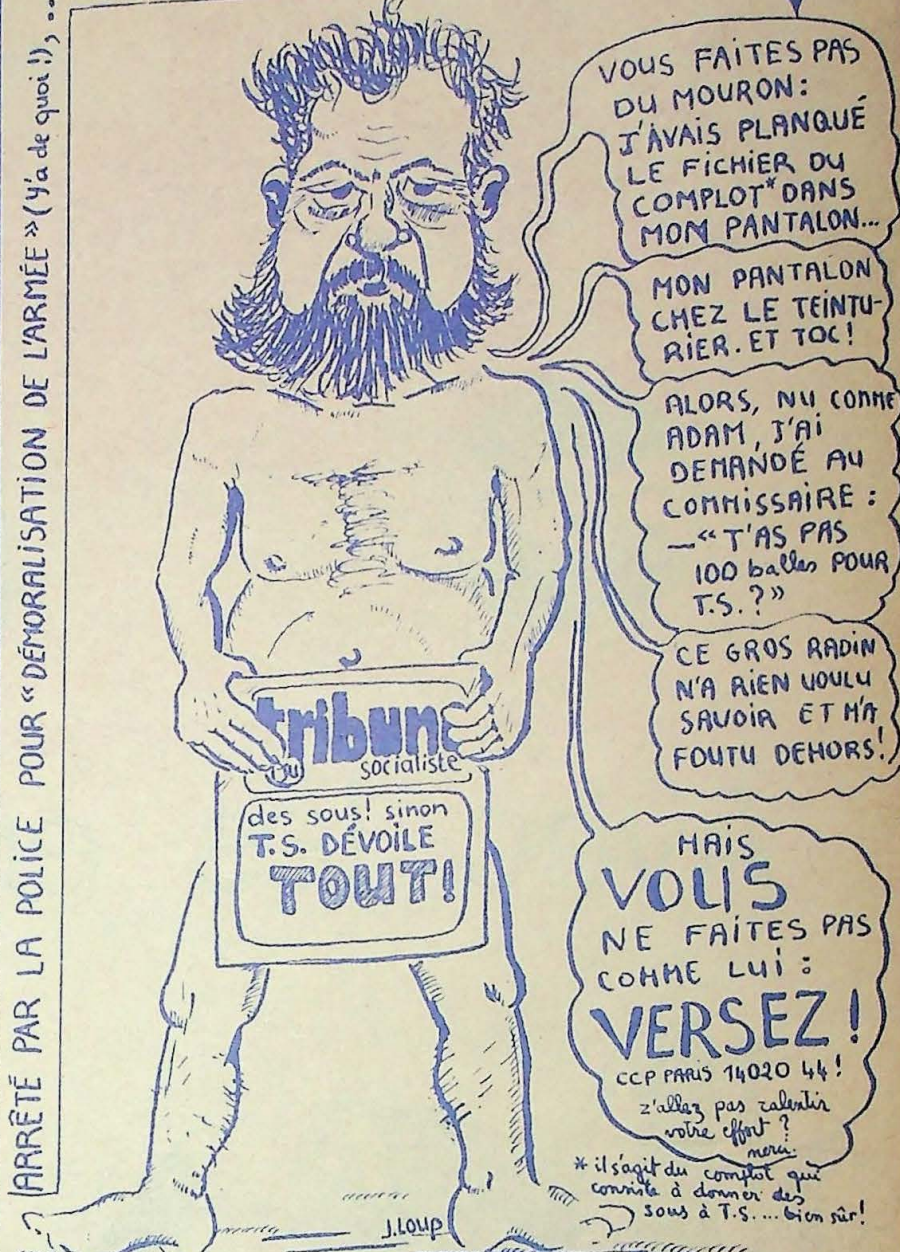 ARRÊTÉ PAR LA POLICE POUR « DÉMORALISATION DE L'ARMÉE » (Y'a de quoi !), ...
VOUS FAITES PAS
DU MOURON :
J'AVAIS PLANQUÉ
LE FICHIER DU
COMPLOT* DANS
MON PANTALON...
MON PANTALON
CHEZ LE TEINTU-
RIER. ET TOC !
ALORS, NU COMME
ADAM, J'AI
DEMANDÉ AU
COMMISSAIRE :
—« T'AS PAS
100 balles POUR
T.S. ? »
CE GROS RADIN
N'A RIEN VOULU
SAVOIR ET M'A
FOUTU DEHORS !
tribune
socialiste
des sous ! sinon
T.S. DÉVOILE
TOUT !
MAIS
VOUS
NE FAITES PAS
COMME LUI :
VERSEZ !
CCP PARIS 14020 44 !
z'allez pas ralentir
votre effort ?
merci.
* il s'agit du complot qui
consiste à donner des
sous à T.S. ... bien sûr !
J.LOUP